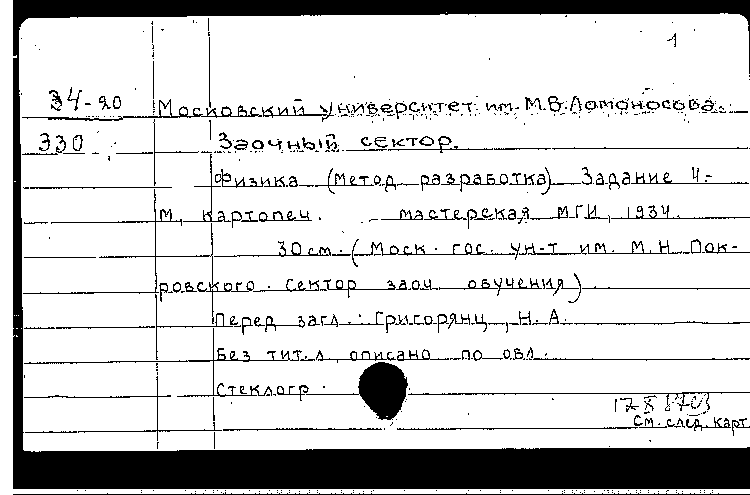 1
34-20 Московский университет им. М.В. Ломоносова.
330 Заочный сектор.
Физика (метод разработка) Задание 4-
М, картопеч. мастерская МГИ, 1934.
30 см. (Моск. гос. ун-т им. М.Н Пок-
ровского. Сектор заоч обучения)
Перед загл.: Григорянц, Н.А.
Без тит. л, описано по обл.
Стеклогр.
178 8703
См. след. карт